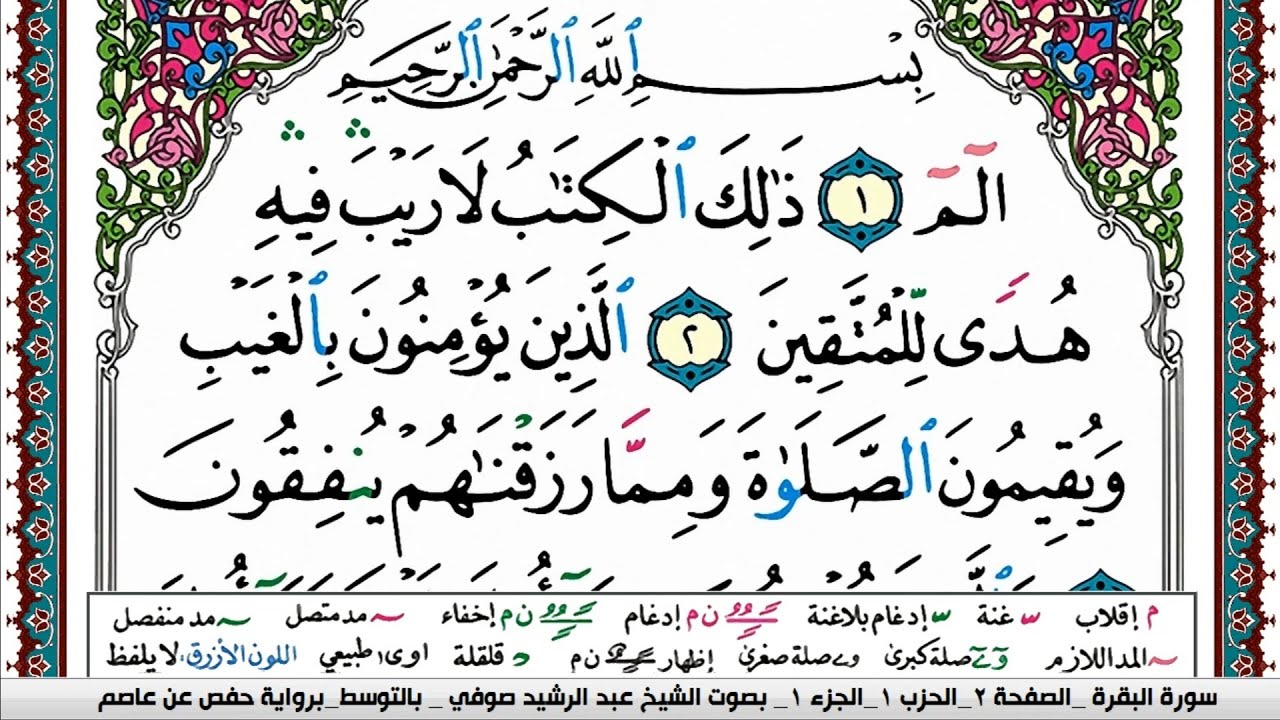 بِسْمِ ٱللَّهِ ٱلرَّحْمَٰنِ ٱلرَّحِيمِ
الٓمٓ ١ ذَٰلِكَ ٱلْكِتَٰبُ لَا رَيْبَ فِيهِ
هُدًى لِّلْمُتَّقِينَ ٢ ٱلَّذِينَ يُؤْمِنُونَ بِٱلْغَيْبِ
وَيُقِيمُونَ ٱلصَّلَوٰةَ وَمِمَّا رَزَقْنَٰهُمْ يُنفِقُونَ
م إقلاب غنة إدغام بلاغنة ن م إدغام ن م إخفاء مد متصل مد منفصل
المد اللازم صلة كبرى صلة صغرى إظهار ن م قلقلة اوى ا طبيعي اللون الأزرق، لا يلفظ
سورة البقرة _الصفحة ٢_الحزب ١_الجزء ١_ بصوت الشيخ عبد الرشيد صوفي _ بالتوسط_برواية حفص عن عاصم